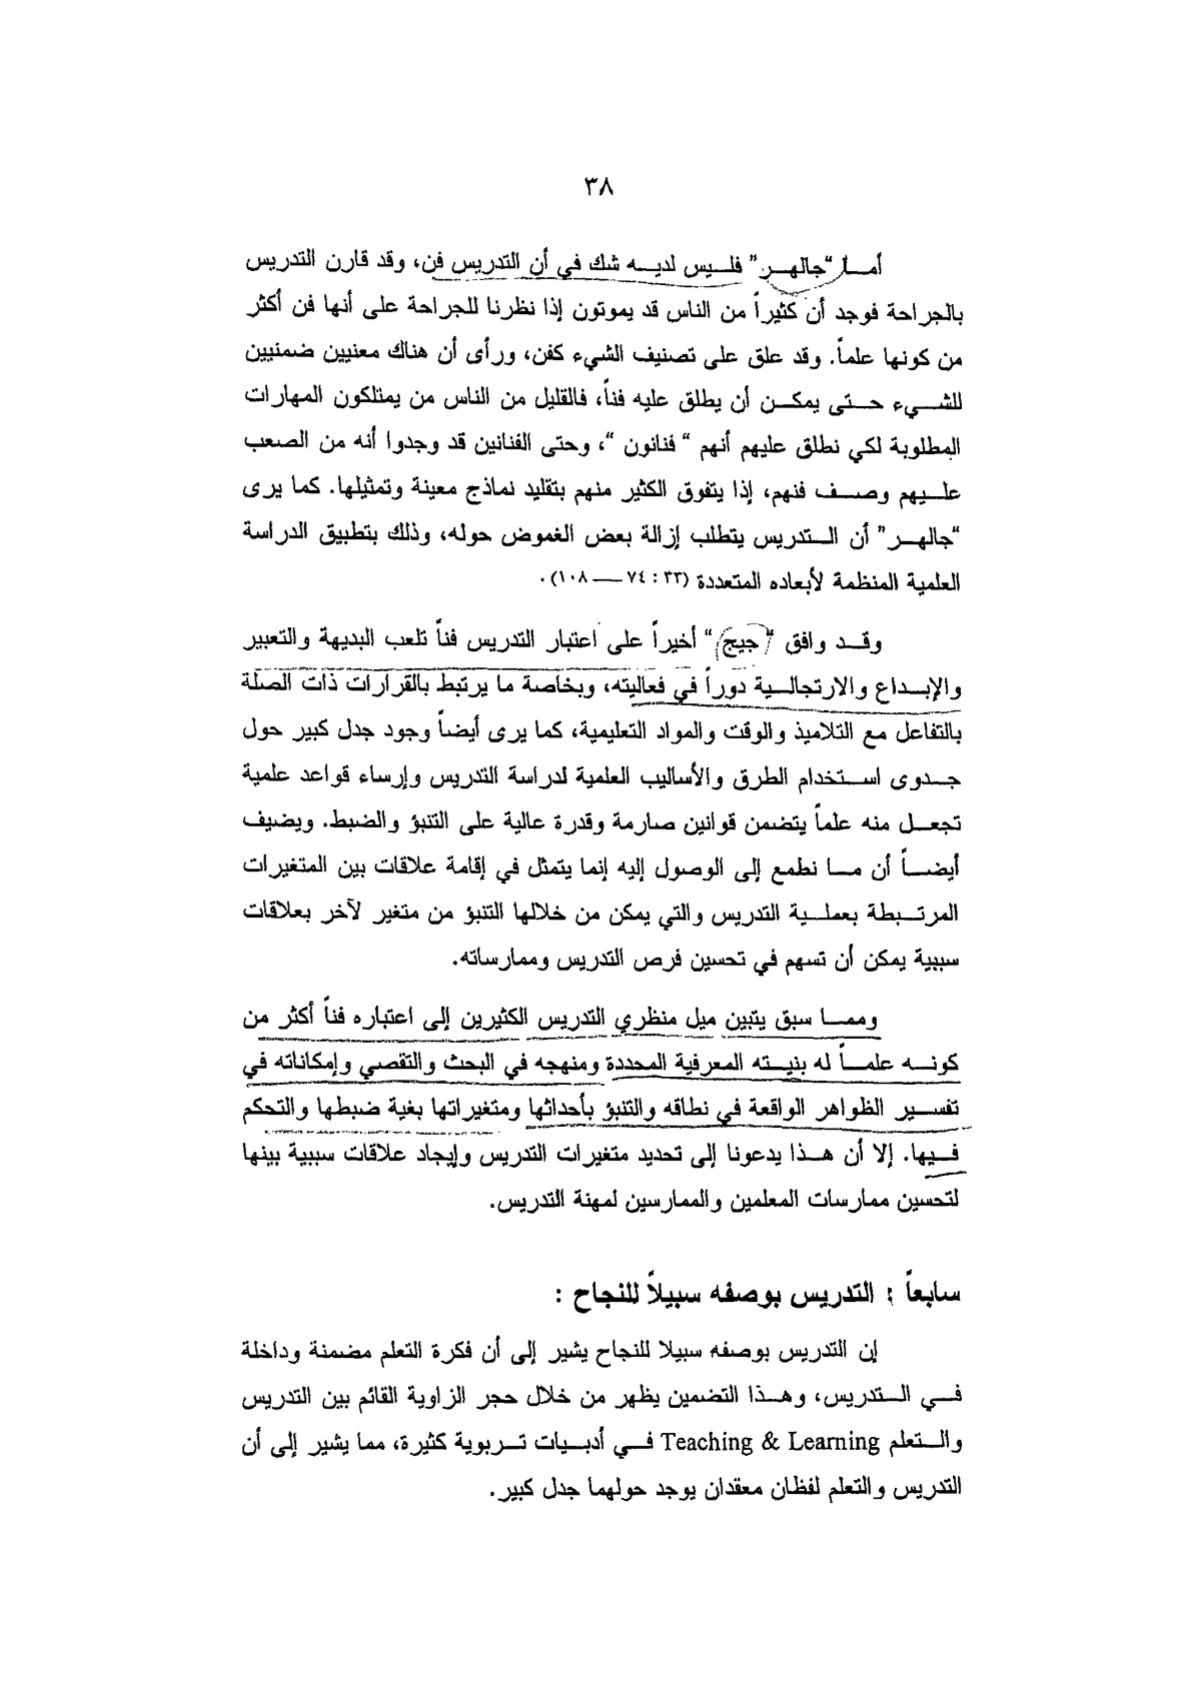 ٣٨
أما "جالهر" فليس لديه شك في أن التدريس فن، وقد قارن التدريس
بالجراحة فوجد أن كثيراً من الناس قد يموتون إذا نظرنا للجراحة على أنها فن أكثر
من كونها علماً. وقد علق على تصنيف الشيء كفن، ورأى أن هناك معنيين ضمنيين
للشيء حتى يمكن أن يطلق عليه فناً، فالقليل من الناس من يمتلكون المهارات
المطلوبة لكي نطلق عليهم أنهم " فنانون "، وحتى الفنانين قد وجدوا أنه من الصعب
عليهم وصف فنهم، إذا يتفوق الكثير منهم بتقليد نماذج معينة وتمثيلها. كما يرى
"جالهر" أن التدريس يتطلب إزالة بعض الغموض حوله، وذلك بتطبيق الدراسة
العلمية المنظمة لأبعاده المتعددة (٣٣ : ٧٤ — ١٠٨).
وقد وافق "جيج" أخيراً على اعتبار التدريس فناً تلعب البديهة والتعبير
والإبداع والارتجالية دوراً في فعاليته، وبخاصة ما يرتبط بالقرارات ذات الصلة
بالتفاعل مع التلاميذ والوقت والمواد التعليمية، كما يرى أيضاً وجود جدل كبير حول
جدوى استخدام الطرق والأساليب العلمية لدراسة التدريس وإرساء قواعد علمية
تجعل منه علماً يتضمن قوانين صارمة وقدرة عالية على التنبؤ والضبط. ويضيف
أيضاً أن ما نطمع إلى الوصول إليه إنما يتمثل في إقامة علاقات بين المتغيرات
المرتبطة بعملية التدريس والتي يمكن من خلالها التنبؤ من متغير لآخر بعلاقات
سببية يمكن أن تسهم في تحسين فرص التدريس وممارساته.
ومما سبق يتبين ميل منظري التدريس الكثيرين إلى اعتباره فناً أكثر من
كونه علماً له بنيته المعرفية المحددة ومنهجه في البحث والتقصي وإمكاناته في
تفسير الظواهر الواقعة في نطاقه والتنبؤ بأحداثها ومتغيراتها بغية ضبطها والتحكم
فيها. إلا أن هذا يدعونا إلى تحديد متغيرات التدريس وإيجاد علاقات سببية بينها
لتحسين ممارسات المعلمين والممارسين لمهنة التدريس.
سابعاً : التدريس بوصفه سبيلاً للنجاح :
إن التدريس بوصفه سبيلا للنجاح يشير إلى أن فكرة التعلم مضمنة وداخلة
في التدريس، وهذا التضمين يظهر من خلال حجر الزاوية القائم بين التدريس
والتعلم Teaching & Learning في أدبيات تربوية كثيرة، مما يشير إلى أن
التدريس والتعلم لفظان معقدان يوجد حولهما جدل كبير.